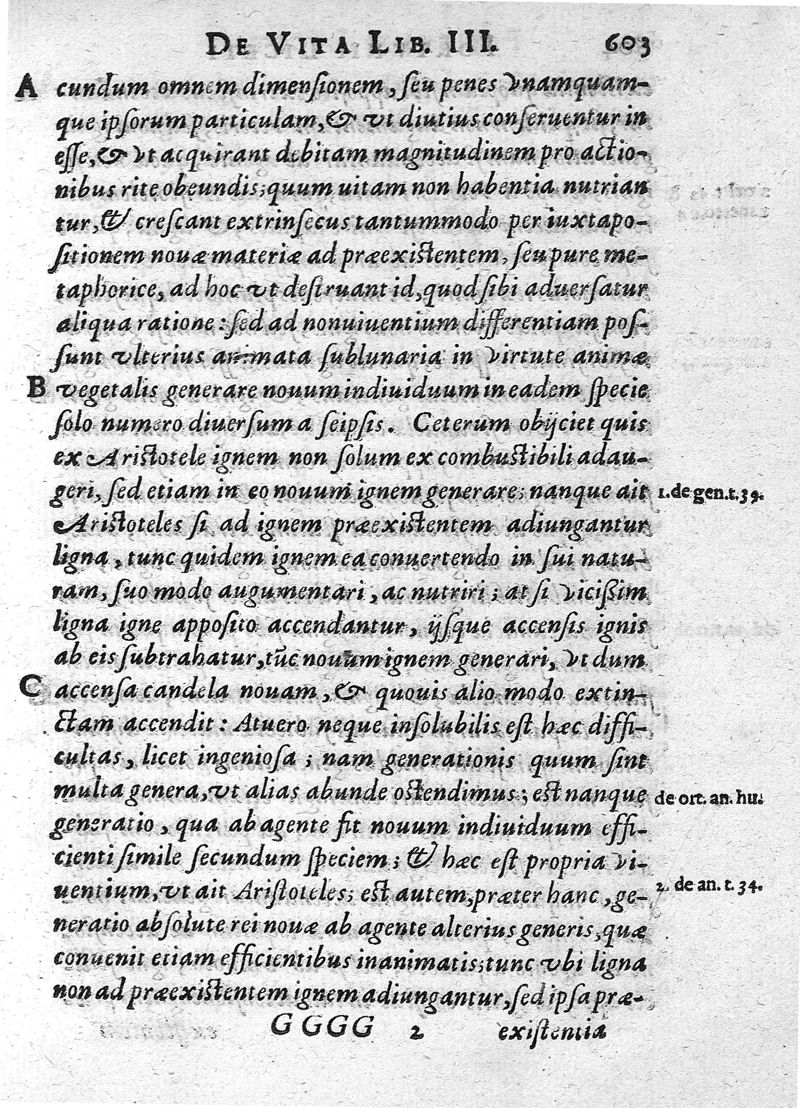 DE VITA LIB. III. 603
A cundum omnem dimenſionem, ſeu penes vnamquam-
que ipſorum particulam, & vt diutius conſeruentur in
eſſe, & vt acquirant debitam magnitudinem pro actio-
nibus rite obeundis; quum uitam non habentia nutrian
tur, & creſcant extrinſecus tantummodo per iuxtapo-
ſitionem nouæ materiæ ad præexiſtentem, ſeu pure me-
taphorice, ad hoc vt deſtruant id, quod ſibi aduerſatur
aliqua ratione: ſed ad nonuiuentium differentiam poſ-
ſunt vlterius animata ſublunaria in virtute animæ
B vegetalis generare nouum indiuiduum in eadem ſpecie
ſolo numero diuerſum a ſeipſis. Ceterum obijciet quis
ex Ariſtotele ignem non ſolum ex combuſtibili adau-
geri, ſed etiam in eo nouum ignem generare; nanque ait 1. de gen. t. 39.
Ariſtoteles ſi ad ignem præexiſtentem adiungantur
ligna, tunc quidem ignem ea conuertendo in ſui natu-
ram, ſuo modo augumentari, ac nutriri; at ſi viciſſim
ligna igne appoſito accendantur, ijſque accenſis ignis
ab eis ſubtrahatur, tũc nouum ignem generari, vt dum
C accenſa candela nouam, & quouis alio modo extin-
ctam accendit: Atuero neque inſolubilis eſt hæc diffi-
cultas, licet ingenioſa; nam generationis quum ſint
multa genera, vt alias abunde oſtendimus; eſt nanque de ort. an. hu.
generatio, qua ab agente fit nouum indiuiduum effi-
cienti ſimile ſecundum ſpeciem; & hæc eſt propria vi-
uentium, vt ait Ariſtoteles; eſt autem, præter hanc, ge- 2. de an. t. 34.
neratio abſolute rei nouæ ab agente alterius generis, quæ
conuenit etiam efficientibus inanimatis; tunc vbi ligna
non ad præexiſtentem ignem adiungantur, ſed ipſa præ-
GGGG 2 exiſtentia